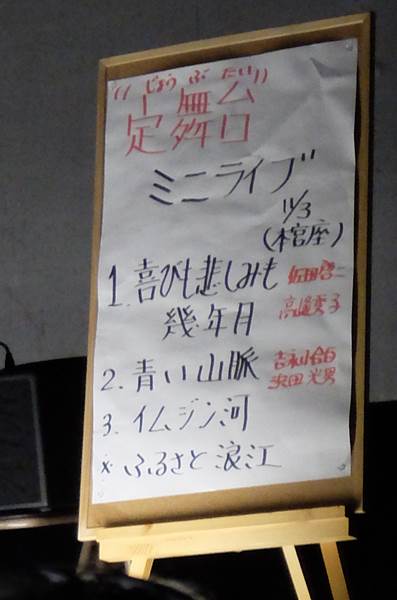 "じょうぶたい"
定舞台
ミニライブ
11/3
(本宮座)
1. 喜びも悲しみも 佐田啓二
幾年月 高峰秀子
2. 青い山脈 吉永小百合
浜田光男
3. イムジン河
× ふるさと浪江